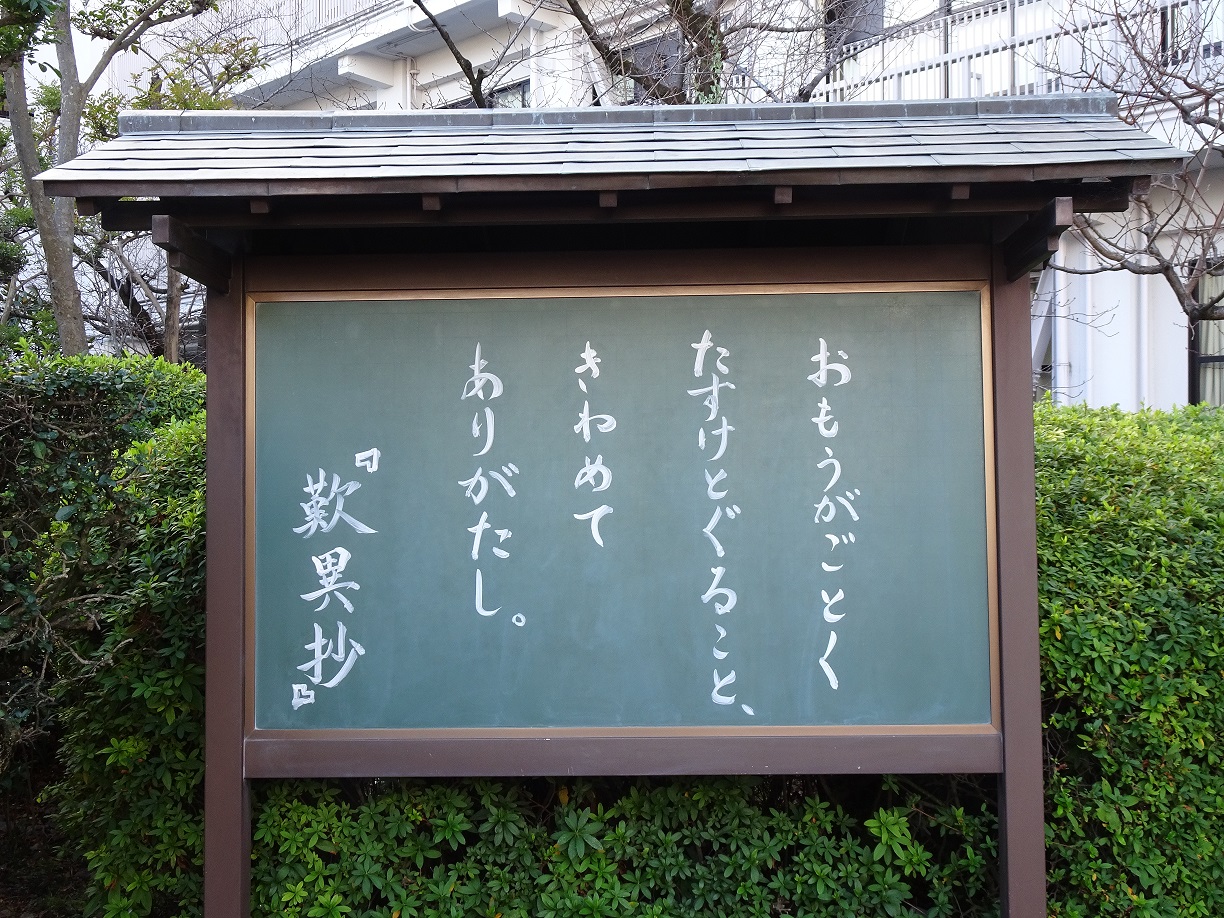 おもうがごとく
たすけとぐること、
きわめて
ありがたし。
『歎異抄』